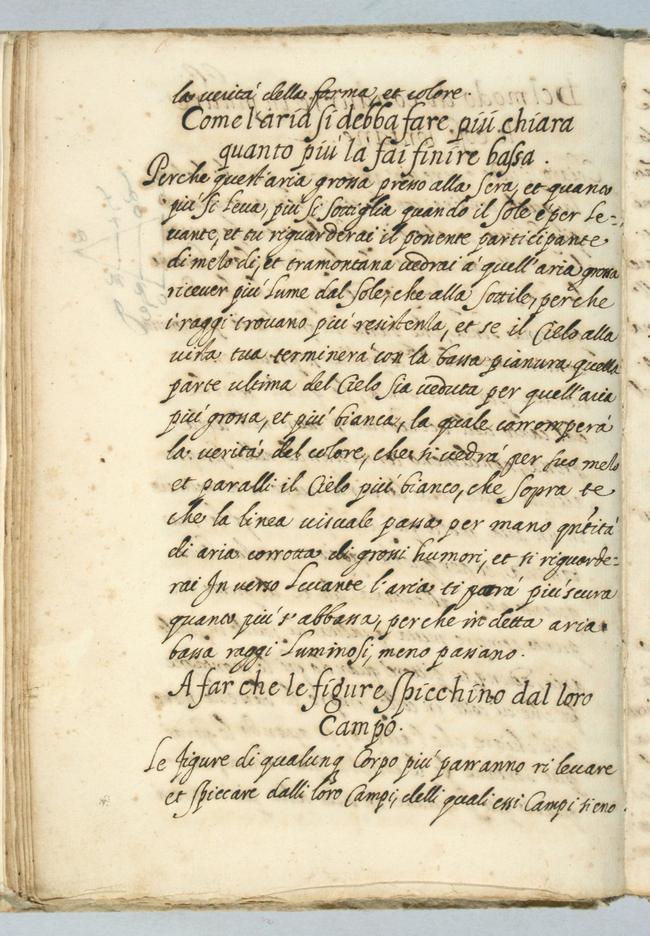 la verità della forma, et colore.
Come l'aria si debba fare più chiara
quanto più la fai finire bassa.
Perche quest'aria grossa presso alla sera, et quanto
più si leva, più si sottiglia quando il sole è per Le=
vante, et tu riguarderai il ponente participante
di mezo di, et tramontana vedrai à quell'aria grossa
ricever più Lume dal Sole, che alla sottile, perche
i raggi trovano più resistenza, et se il Cielo alla
vista tua terminerà con la bassa pianura quella
parte ultima del Cielo sia veduta per quell'aria
più grossa, et più bianca, la quale corromperà
la verità del colore, che si vedrà per suo mezo
et paralli il Cielo più bianco, che sopra te
che la linea visuale passa per mano qntità
di aria corrotta di grossi humori, et si riguarde=
rai In verso Levante l'aria ti parrà più scura
quanto più s'abbassa, perche in detta aria
bassa raggi Luminosi, meno passano.
A far che le figure spicchino dal loro
Campo.
Le figure di qualunq Corpo più parranno rilevare
et spiccare dalli loro Campi, delli quali essi Campi sieno